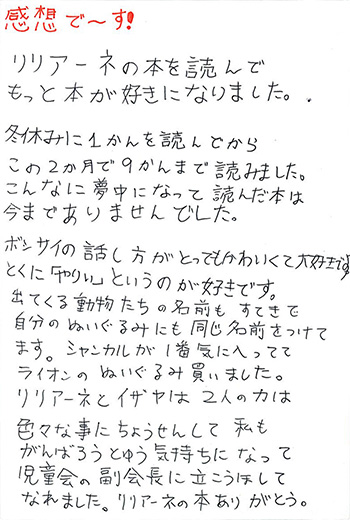 感想で〜す!
リリアーネの本を読んで
もっと本が好きになりました。
冬休みに1かんを読んでから
この2か月で9かんまで読みました。
こんなに夢中になって読んだ本は
今までありませんでした。
ボンサイの話し方がとってもかわいくて大好きです。
とくに「やりぃ」というのが好きです。
出てくる動物たちの名前もすてきで
自分のぬいぐるみにも同じ名前をつけて
ます。シャンカルが1番気に入ってて
ライオンのぬいぐるみ買いました。
リリアーネとイザヤは2人の力は
色々な事にちょうせんして私も
がんばろうとゆう気持ちになって
児童会の副会長に立こうほして
なれました。リリアーネの本ありがとう。